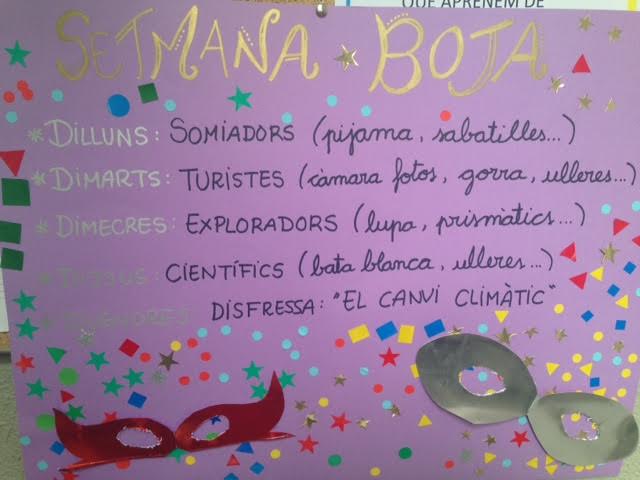 QUE APRENEM DE
SETMANA BOJA
* DILLUNS: SOMIADORS (pijama, sabatilles...)
* DIMARTS: TURISTES (càmara fotos, gorra, ulleres...)
* DIMECRES: EXPLORADORS (lupa, prismàtics...)
* DIJOUS: CIENTÍFICS (bata blanca, ulleres...)
* DIVENDRES DISFRESSA: "EL CANVI CLIMÀTIC"